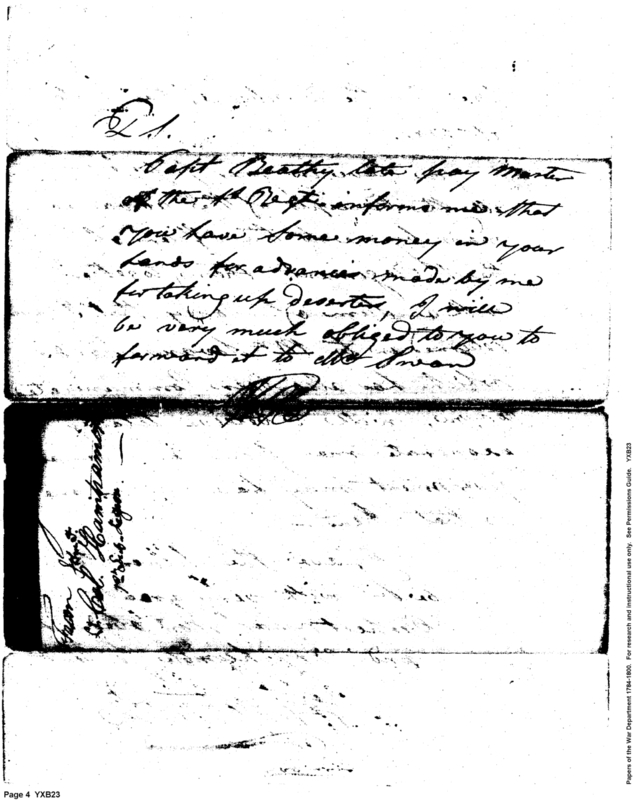 P.S.
Capt Beatty late pay Master
of the 1st Regt informs me that
you have some money in your
hands for advances made by me
for taking up deserters, I will
be very much obliged to you to
forward it to Mr Swan
From
Lieut.
1st Sub-Legion
Papers of the War Department 1784-1800. For research and instructional use only. See Permissions Guide. YXB23
Page 4 YXB23